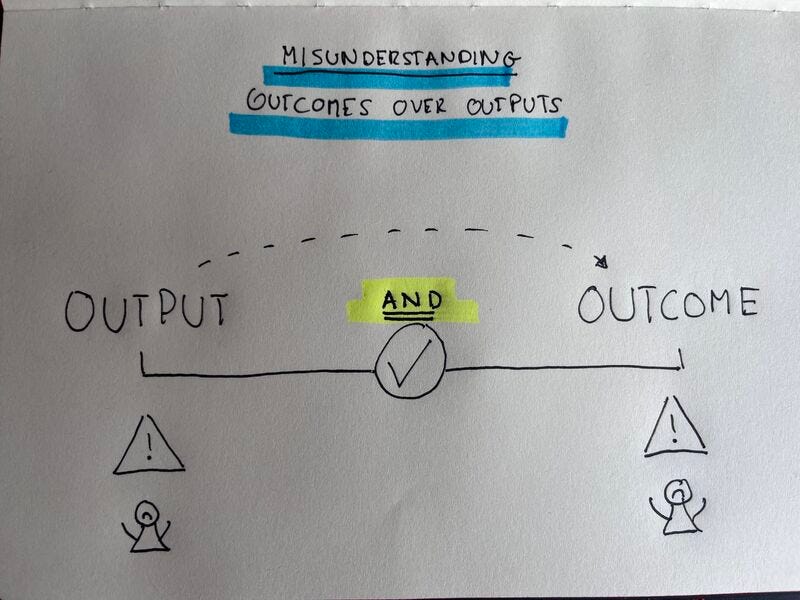 MISUNDERSTANDING
OUTCOMES OVER OUTPUTS
OUTPUT
AND
OUTCOME
!
!